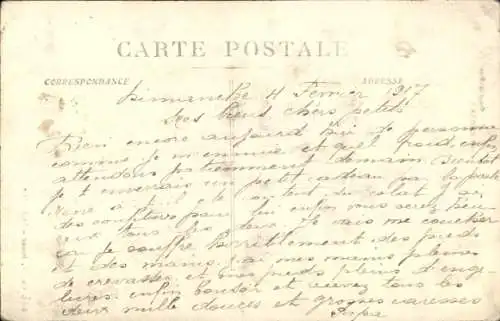 CARTE POSTALE
CORRESPONDANCE ADRESSE
Dimanche 4 Fevrier 1917
Mes biens chers petits
Rien encore aujourd hui de personne
comme je m'ennuie et quel froid enfin
attendons patiemment demain bientôt
je t enverrais un petit par la poste
du
des confitures pour enfin vous serez heu
eux tous les deux. Je vais me coucher
car je souffre horriblement des pieds
et des mains j ai mes mains pleines
de crevasses et mes pieds pleins d enge
lures. enfin bonsoir et recevez tous les
deux mille douces et grosses caresses
Papa